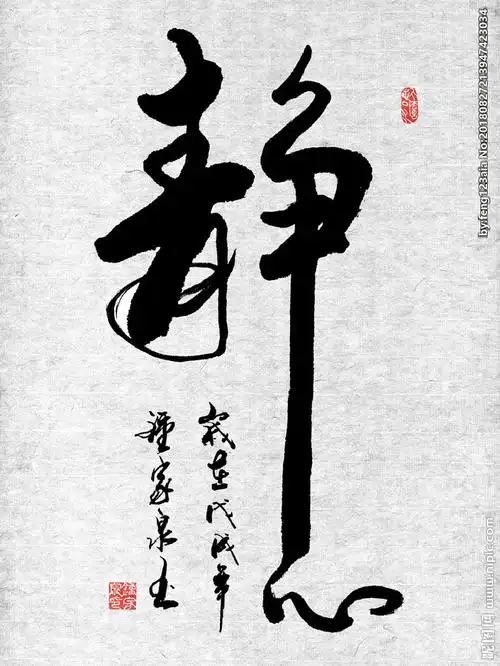 静心
歲在戊戌年
鍾家泉书
by:feng123ala No:20180827213947423034
昵图网 www.nipic.com